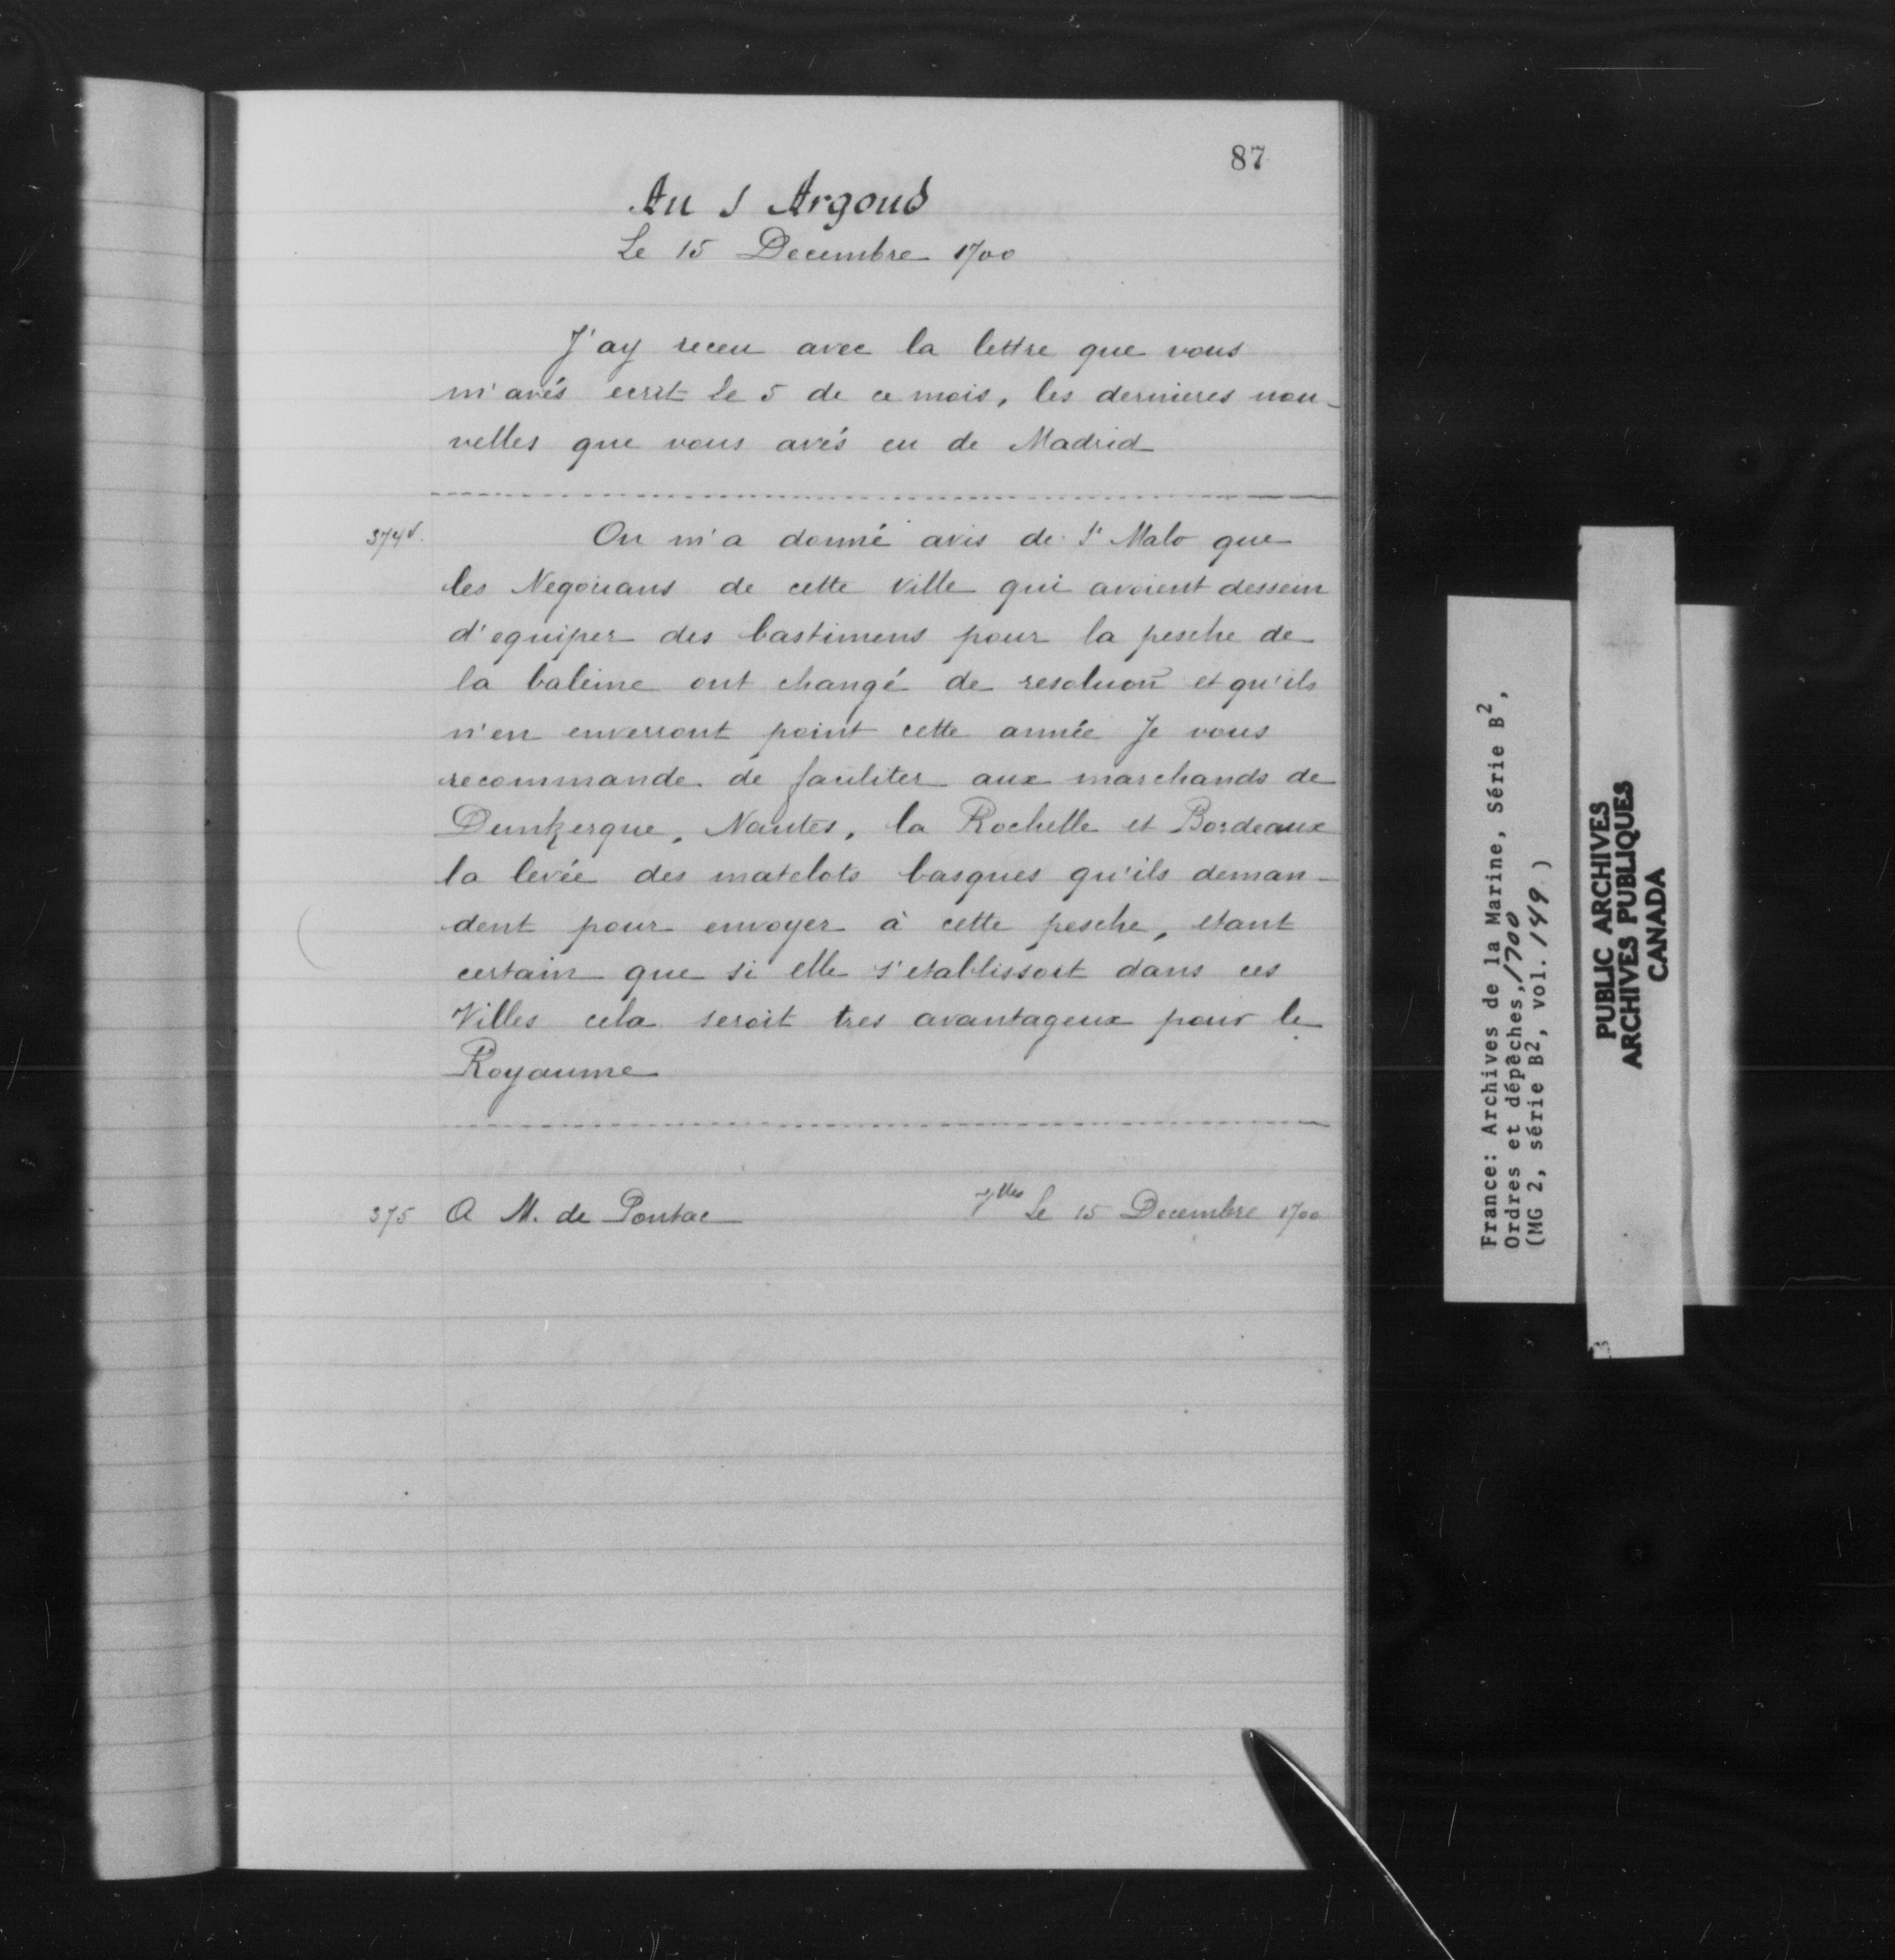 87
Au S Argoud
Le 15 Decembre 1700
J'ay receu avec la lettre que vous
m'avés ecrit le 5 de ce mois, les dernieres nou-
velles que vous avés eu de Madrid
374v.
On m'a donné avis de St Malo que
les Negocians de cette Ville qui avoient dessein
d'equiper des bastimens pour la pesche de
la baleine ont changé de resoluon et qu'ils
n'en enverront point cette année Je vous
recommande de faciliter aux marchands de
Dunkerque, Nantes, la Rochelle et Bordeaux
la levée des matelots basques qu'ils deman-
dent pour envoyer à cette pesche, etant
certain que si elle s'etablissoit dans ces
Villes cela seroit tres avantageux pour le
Royaume
375 A M. de Pontac Vlles Le 15 Decembre 1700
France: Archives de la Marine, Série B2,
Ordres et dépêches, 1700
(MG 2, série B2, vol. 149 )
PUBLIC ARCHIVES
ARCHIVES PUBLIQUES
CANADA